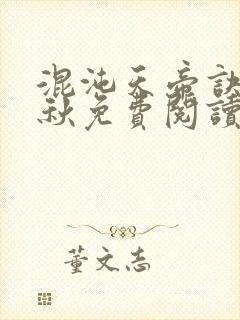 混沌天帝訣
秋免費閱讀
董文志